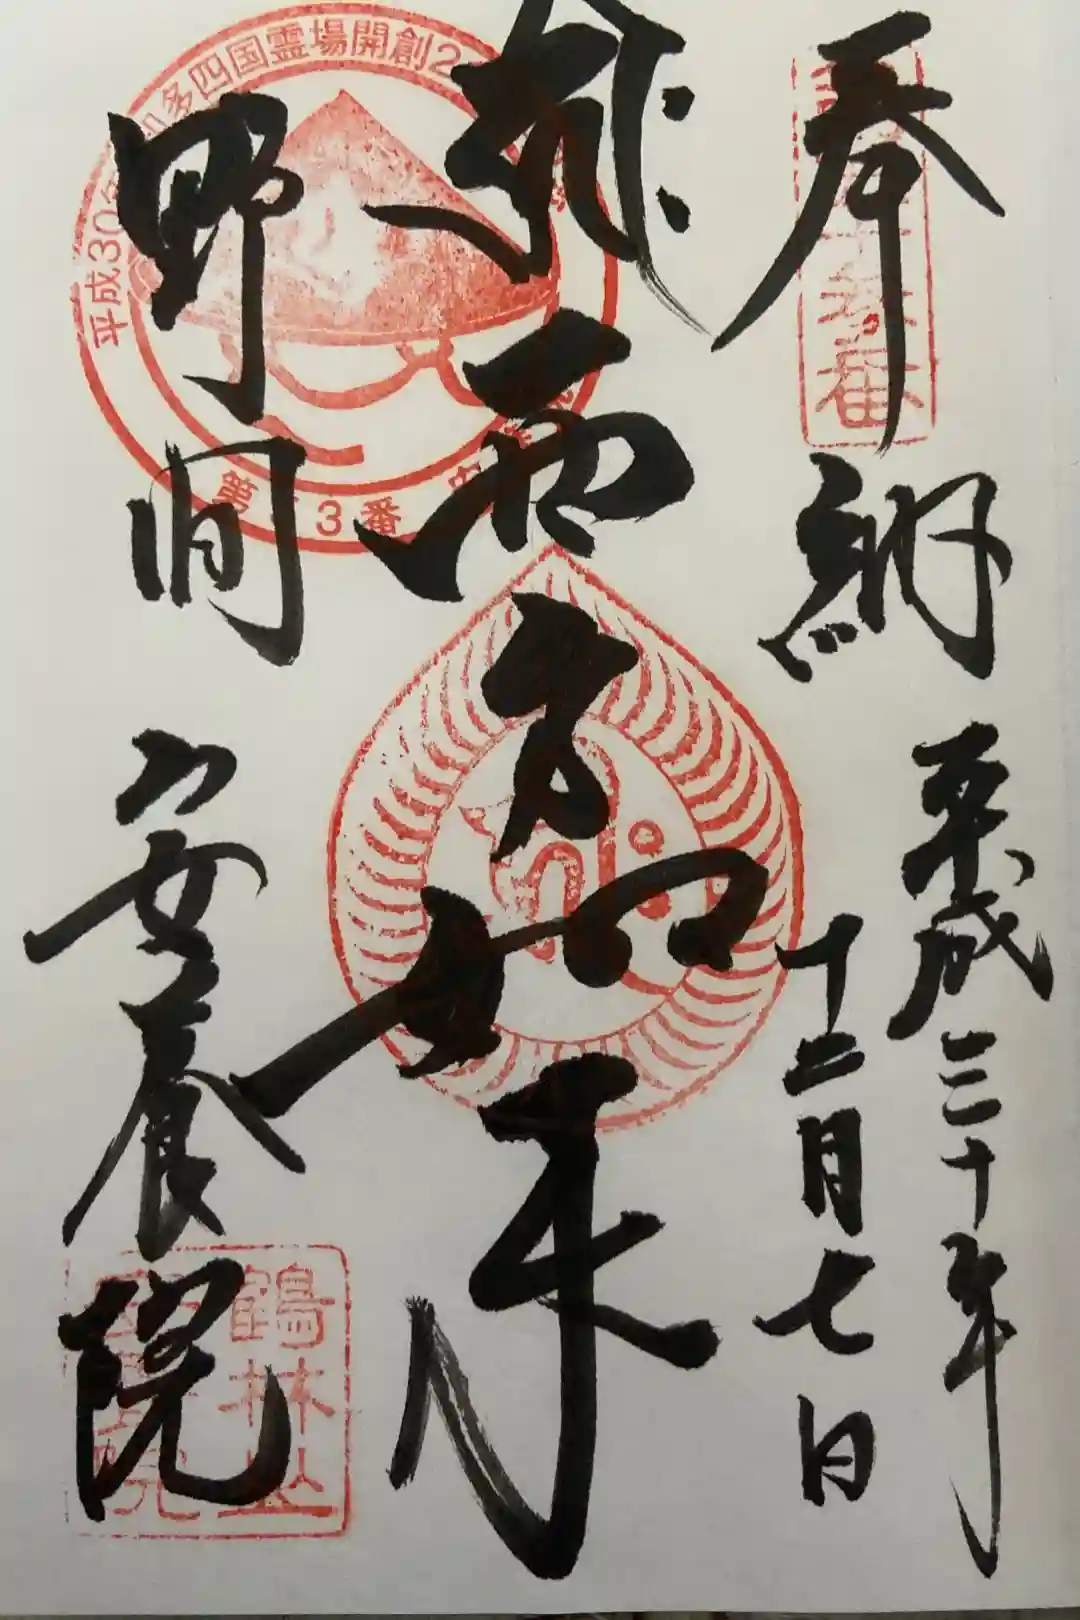 奉納
平成三十年
十二月七日
西方如来
野間
安養院
平成30年
多四国霊場開創2
第 3番
番
鶴林山
院